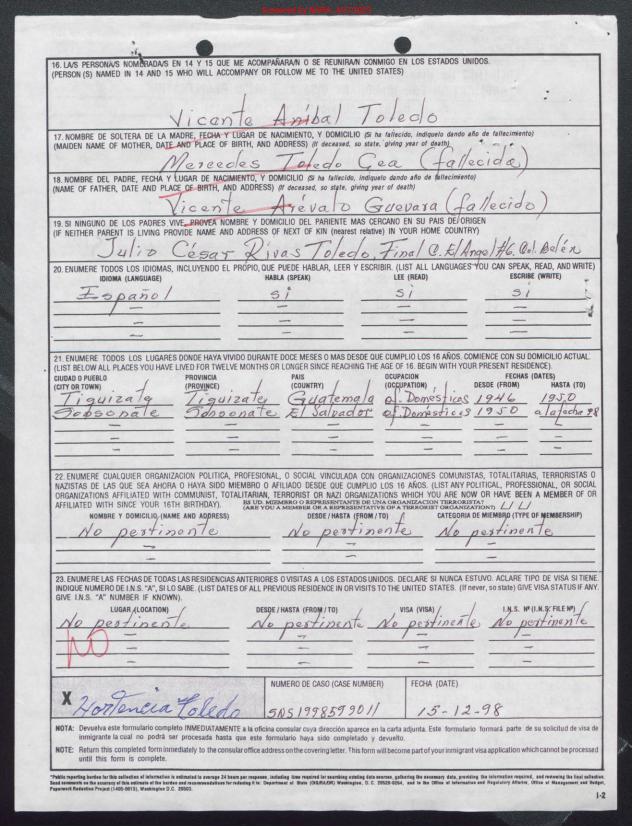 16. LA/S PERSONA/S NOMBRADA/S EN 14 Y 15 QUE ME ACOMPAÑARA/N O SE REUNIRA/N CONMIGO EN LOS ESTADOS UNIDOS.
(PERSON (S) NAMED IN 14 AND 15 WHO WILL ACCOMPANY OR FOLLOW ME TO THE UNITED STATES)
Vicente Aníbal Toledo
17. NOMBRE DE SOLTERA DE LA MADRE, FECHA Y LUGAR DE NACIMIENTO, Y DOMICILIO (Si ha fallecido, indiquelo dando año de fallecimiento)
(MAIDEN NAME OF MOTHER, DATE AND PLACE OF BIRTH, AND ADDRESS) (If deceased, so state, giving year of death)
Mercedes Toledo Cea (fallecida)
18. NOMBRE DEL PADRE, FECHA Y LUGAR DE NACIMIENTO, Y DOMICILIO (Si ha fallecido, indiquelo dando año de fallecimiento)
(NAME OF FATHER, DATE AND PLACE OF BIRTH, AND ADDRESS) (If deceased, so state, giving year of death)
Vicente Arévalo Guevara (fallecido)
19. SI NINGUNO DE LOS PADRES VIVE, PROVEA NOMBRE Y DOMICILIO DEL PARIENTE MAS CERCANO EN SU PAIS DE ORIGEN
(IF NEITHER PARENT IS LIVING PROVIDE NAME AND ADDRESS OF NEXT OF KIN (nearest relative) IN YOUR HOME COUNTRY)
Julio César Rivas Toledo, Final C. El Angel #6. Col. Belén
20. ENUMERE TODOS LOS IDIOMAS, INCLUYENDO EL PROPIO, QUE PUEDE HABLAR, LEER Y ESCRIBIR. (LIST ALL LANGUAGES YOU CAN SPEAK, READ, AND WRITE)
IDIOMA (LANGUAGE) HABLA (SPEAK) LEE (READ) ESCRIBE (WRITE)
Español si si si
— — — —
— — — —
— — — —
21. ENUMERE TODOS LOS LUGARES DONDE HAYA VIVIDO DURANTE DOCE MESES O MAS DESDE QUE CUMPLIO LOS 16 AÑOS. COMIENCE CON SU DOMICILIO ACTUAL.
(LIST BELOW ALL PLACES YOU HAVE LIVED FOR TWELVE MONTHS OR LONGER SINCE REACHING THE AGE OF 16. BEGIN WITH YOUR PRESENT RESIDENCE).
CIUDAD O PUEBLO PROVINCIA PAIS OCUPACION FECHAS (DATES)
(CITY OR TOWN) (PROVINCE) (COUNTRY) (OCCUPATION) DESDE (FROM) HASTA (TO)
Tiquizate Tiquizate Guatemala of. Domésticos 1946 1950
Sonsonate Sonsonate El Salvador of. Domésticos 1950 a la fecha 98
— — — — — —
— — — — — —
22. ENUMERE CUALQUIER ORGANIZACION POLITICA, PROFESIONAL, O SOCIAL VINCULADA CON ORGANIZACIONES COMUNISTAS, TOTALITARIAS, TERRORISTAS O
NAZISTAS DE LAS QUE SEA AHORA O HAYA SIDO MIEMBRO O AFILIADO DESDE QUE CUMPLIO LOS 16 AÑOS. (LIST ANY POLITICAL, PROFESSIONAL, OR SOCIAL
ORGANIZATIONS AFFILIATED WITH COMMUNIST, TOTALITARIAN, TERRORIST OR NAZI ORGANIZATIONS WHICH YOU ARE NOW OR HAVE BEEN A MEMBER OF OR
AFFILIATED WITH SINCE YOUR 16TH BIRTHDAY). ES UD. MIEMBRO O REPRESENTANTE DE UNA ORGANIZACION TERRORISTA?
(ARE YOU A MEMBER OR A REPRESENTATIVE OF A TERRORIST ORGANIZATION?)
NOMBRE Y DOMICILIO (NAME AND ADDRESS) DESDE / HASTA (FROM / TO) CATEGORIA DE MIEMBRO (TYPE OF MEMBERSHIP)
No pertinente No pertinente No pertinente
— — —
— — —
23. ENUMERE LAS FECHAS DE TODAS LAS RESIDENCIAS ANTERIORES O VISITAS A LOS ESTADOS UNIDOS. DECLARE SI NUNCA ESTUVO. ACLARE TIPO DE VISA SI TIENE.
INDIQUE NUMERO DE I.N.S. "A", SI LO SABE. (LIST DATES OF ALL PREVIOUS RESIDENCE IN OR VISITS TO THE UNITED STATES. (If never, so state) GIVE VISA STATUS IF ANY.
GIVE I.N.S. "A" NUMBER IF KNOWN).
LUGAR (LOCATION) DESDE / HASTA (FROM / TO) VISA (VISA) I.N.S. Nº (I.N.S. FILE Nº)
No pertinente No pertinente No pertinente No pertinente
NO — — — —
— — — —
X Hortencia Toledo
NUMERO DE CASO (CASE NUMBER) FECHA (DATE)
SNS1998599011 15-12-98
NOTA: Devuelva este formulario completo INMEDIATAMENTE a la oficina consular cuya dirección aparece en la carta adjunta. Este formulario formará parte de su solicitud de visa de
inmigrante la cual no podrá ser procesada hasta que este formulario haya sido completado y devuelto.
NOTE: Return this completed form immediately to the consular office address on the covering letter. This form will become part of your immigrant visa application which cannot be processed
until this form is complete.
1-2